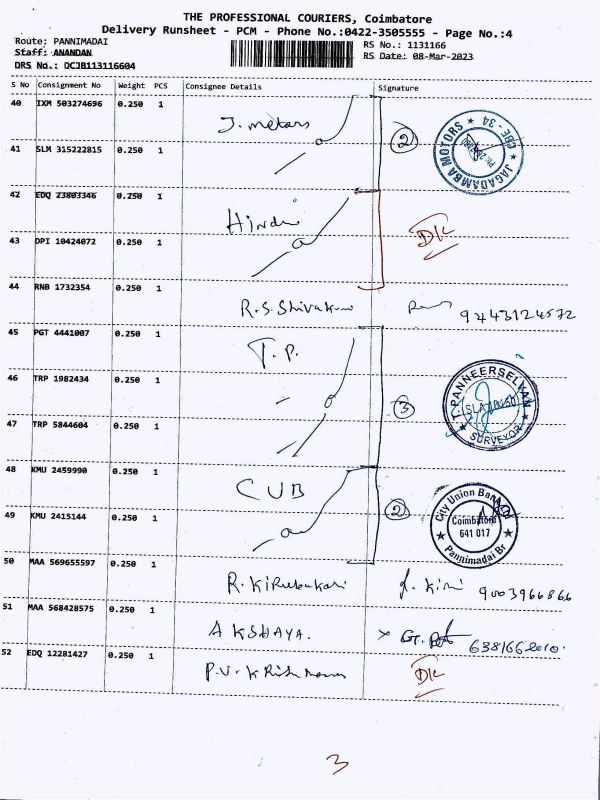 THE PROFESSIONAL COURIERS, Coimbatore
Delivery Runsheet - PCM - Phone No.:0422-3505555 - Page No.:4
Route: PANNIMADAI RS No.: 1131166
Staff: ANANDAN RS Date: 08-Mar-2023
DRS No.: DCJB113116604
S No Consignment No Weight PCS Consignee Details Signature
40 IXM 503274696 0.250 1 J. motors 2 JAGADAMBA MOTORS ★ CBE - 34 ★
41 SLM 315222815 0.250 1
42 EDQ 23803346 0.250 1
43 DPI 10424072 0.250 1
44 RNB 1732354 0.250 1 R.S. Shivakum 9443124572
45 PGT 4441007 0.250 1 T.P.
46 TRP 1982434 0.250 1 3 T. PANNEERSELVAM ★ SURVEYOR ★
47 TRP 5844604 0.250 1
48 KMU 2459990 0.250 1 CUB
49 KMU 2415144 0.250 1 2 City Union Bank Coimbatore 641 017 ★ Pannimadai Br ★
50 MAA 569655597 0.250 1 9003966866
51 MAA 568428575 0.250 1 AKSHAYA.
52 EDQ 12281427 0.250 1
3